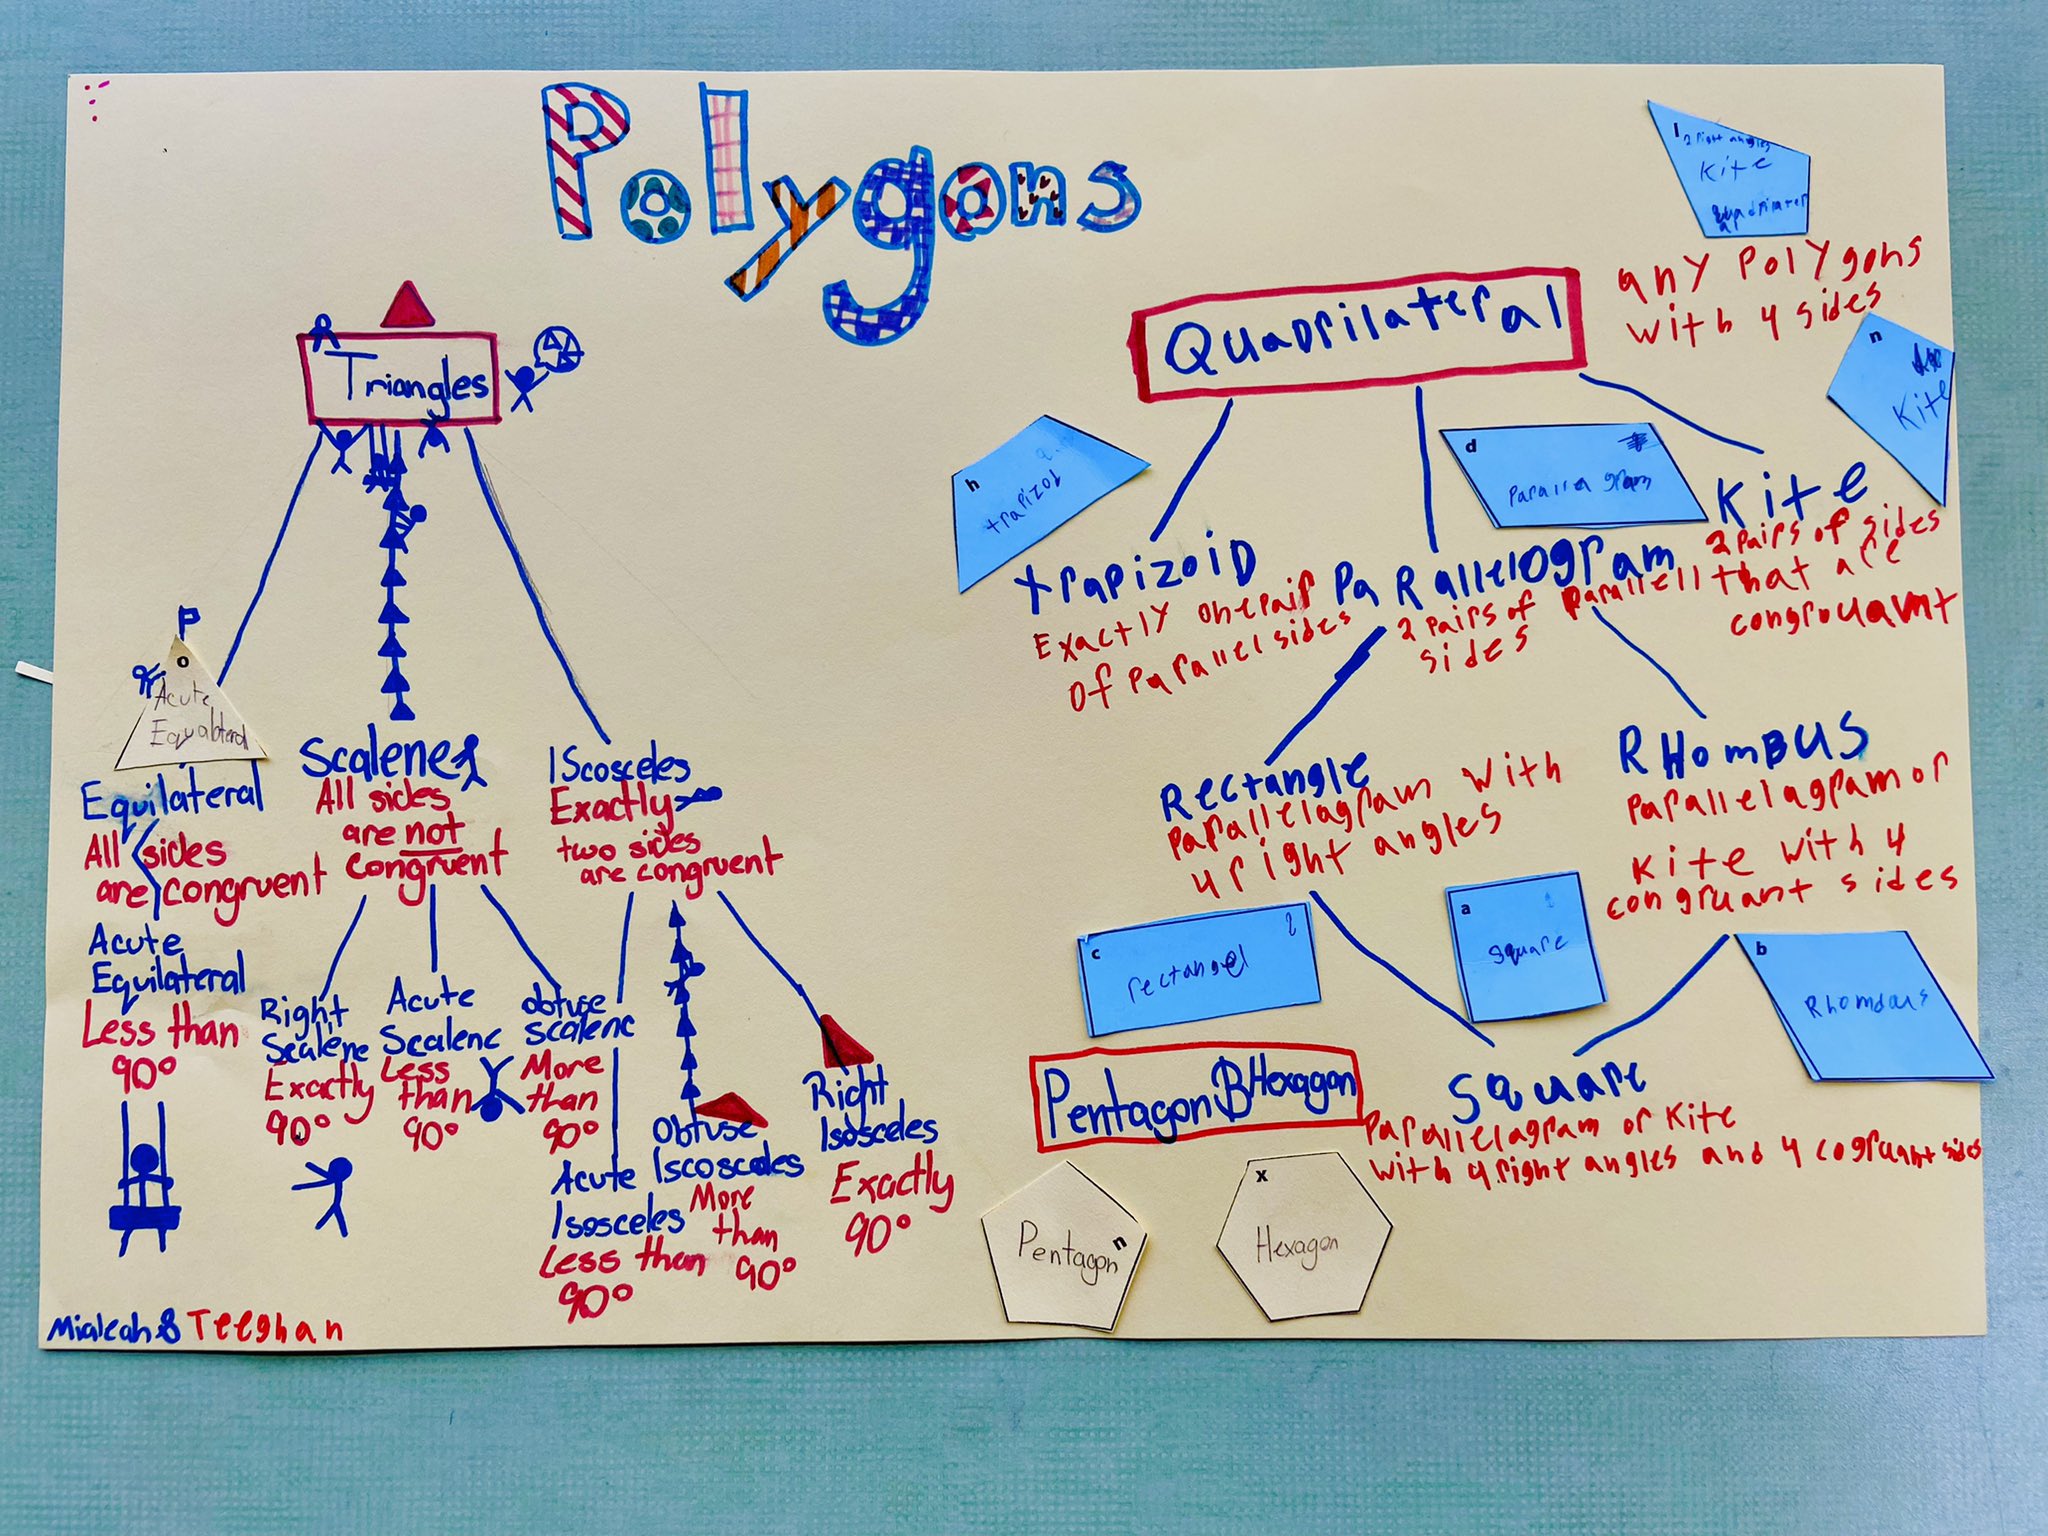 Polygons
Triangles
o
Acute
Equilateral
Equilateral
All sides
are congruent
Acute
Equilateral
Less than
90°
Scalene
All sides
are not
congruent
Right
Scalene
Exactly
90°
Acute
Scalene
Less
than
90°
obtuse
scalene
More
than
90°
Iscosceles
Exactly
two sides
are congruent
Acute
Isosceles
Less than
90°
Obtuse
Iscoscoles
More
than
90°
Right
Isosceles
Exactly
90°
Mialeah & Teeghan
Quadrilateral
any Polygons
with 4 sides
l
2 right angles
Kite
n
Kite
h
trapizoi
trapizoiD
Exactly one pair
of parallel sides
d
Parallelogram
2 pairs of parallell
sides
Kite
2 pairs of sides
that are
congrouamt
Rectangle
parallelagram with
4 right angles
c
rectangel
RHombus
parallelagram or
Kite with 4
congruant sides
a
square
b
Rhombus
Square
Parallelagram or Kite
with 4 right angles and 4 cogruant sides
Pentagon & Hexagon
Pentagon
n
x
Hexagon